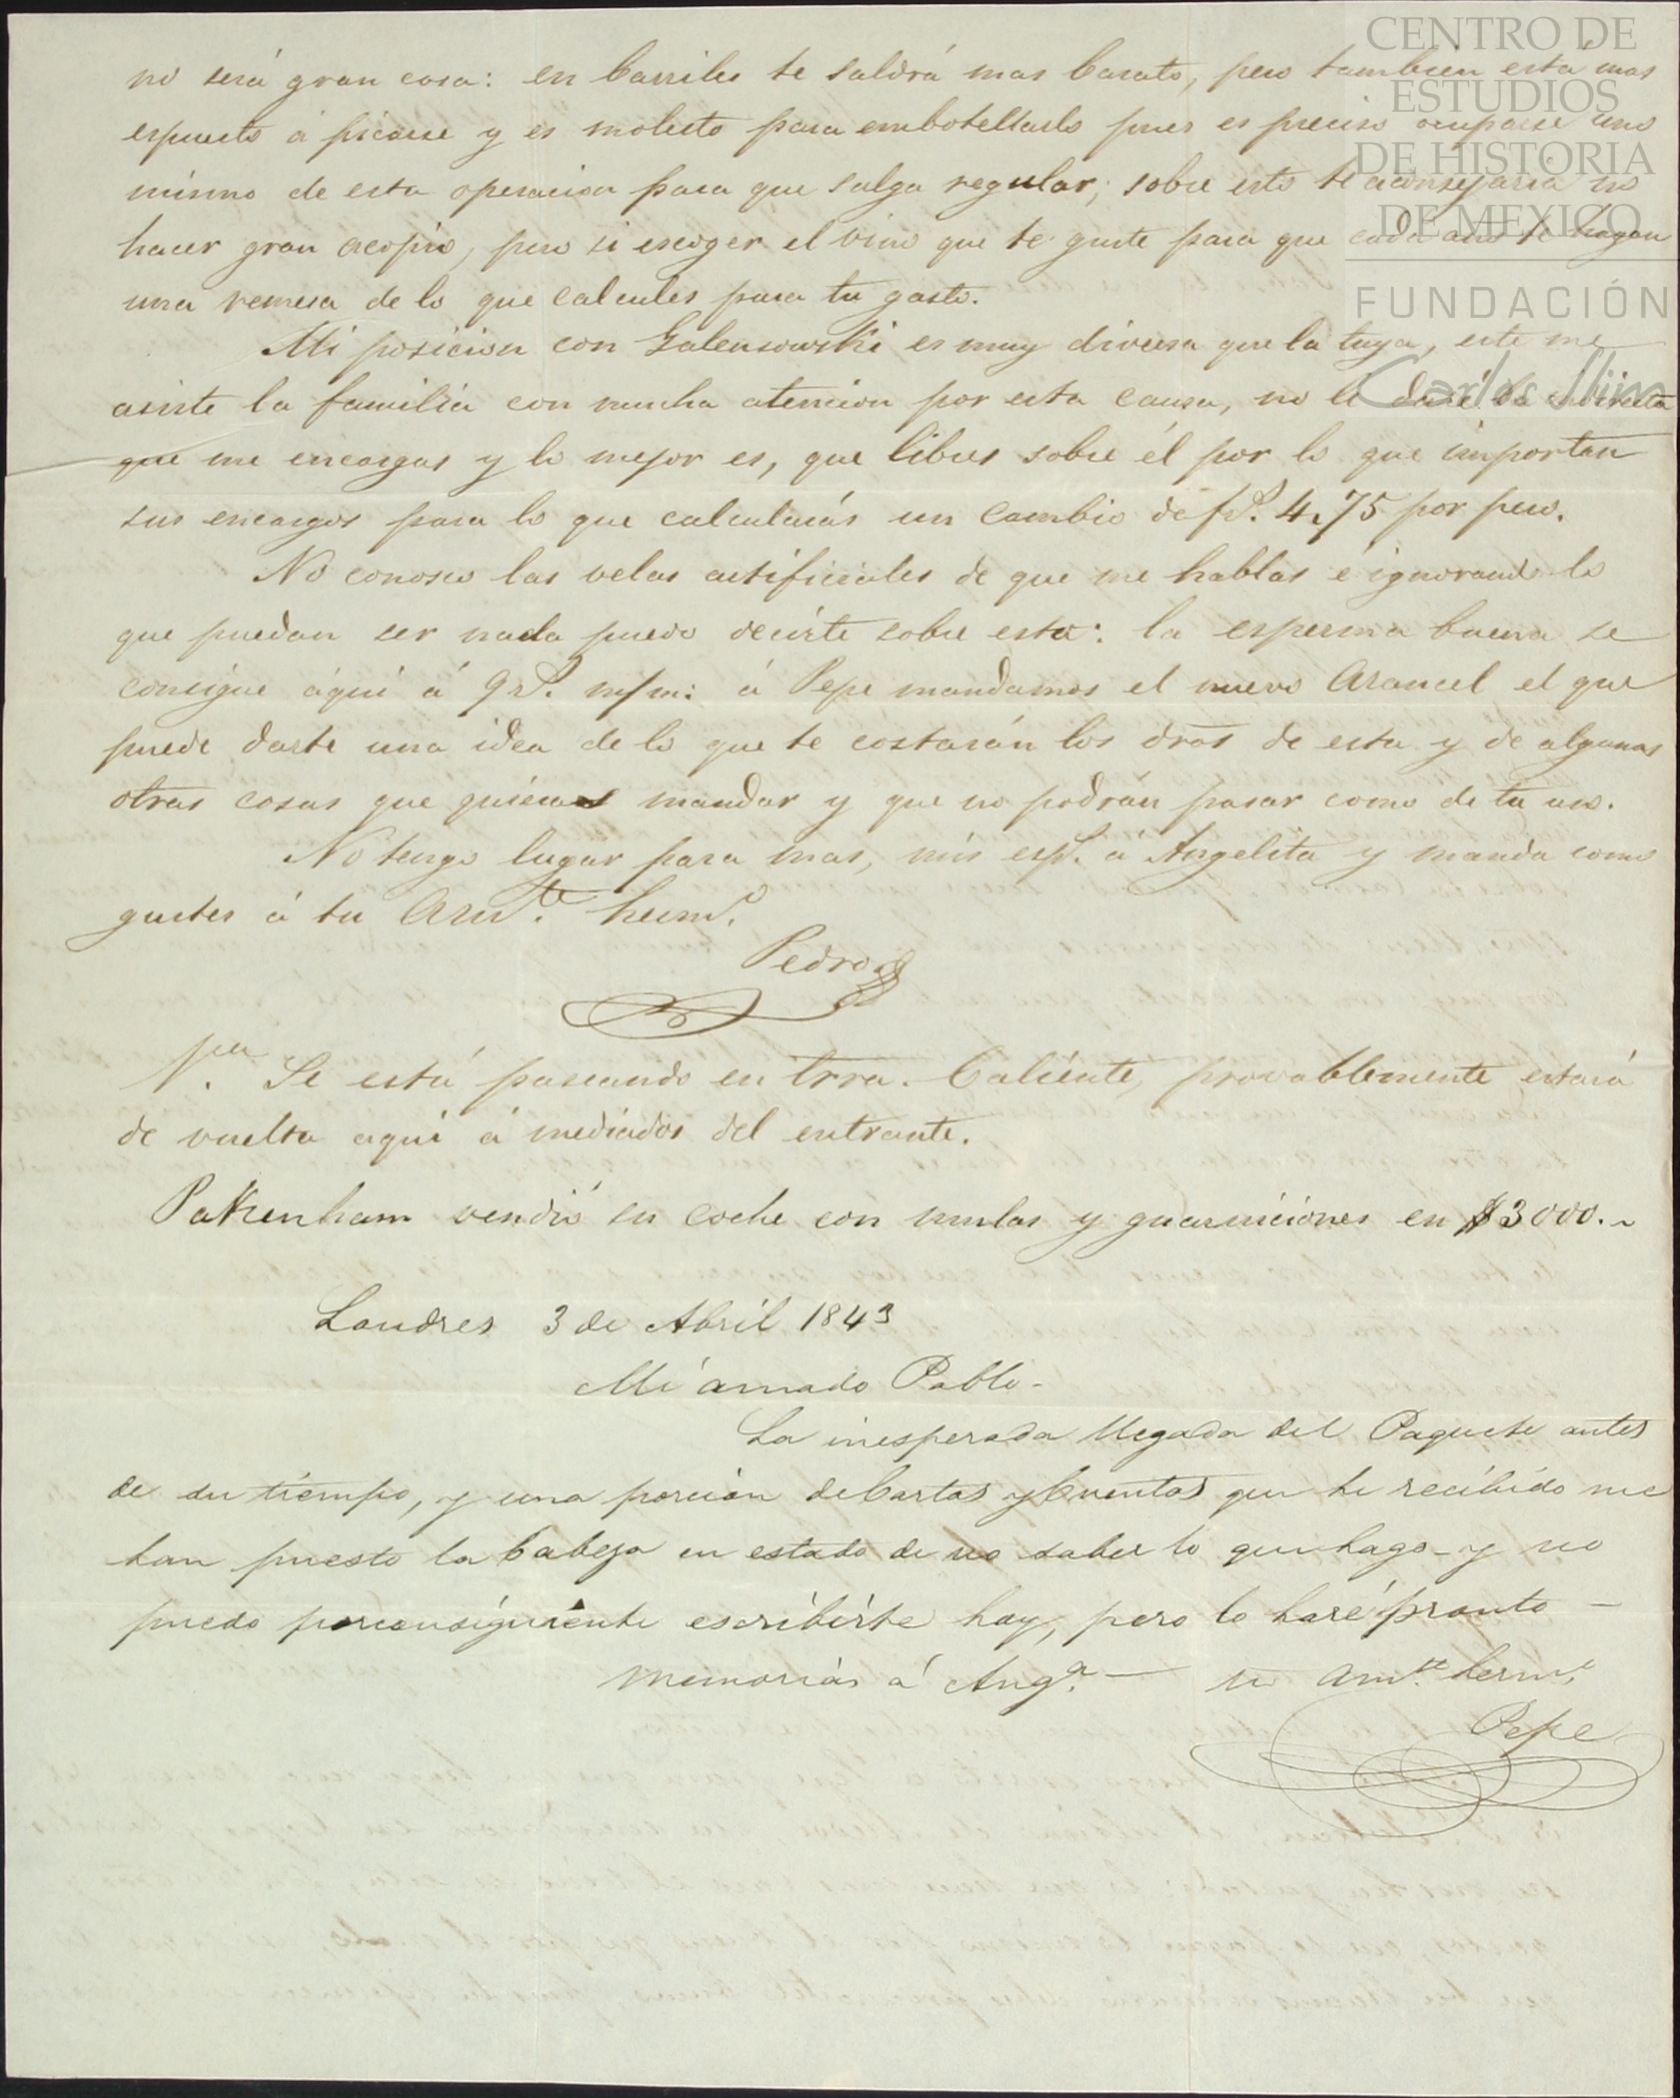 CENTRO DE
ESTUDIOS
DE HISTORIA
DE MEXICO
FUNDACIÓN
Carlos Slim
no será gran cosa: en barriles te saldrá mas barato, pero tambien está mas
espuesto á picarse y es molesto para embotellarlo pues es preciso ocuparse uno
mismo de esta operacion para que salga regular; sobre esto te aconsejaria no
hacer gran acopio, pero si escoger el vino que te guste para que cada año te hagan
una remesa de lo que calcules para tu gasto.
Mi posicion con Galensowski es muy diversa que la tuya, este me
asiste la familia con mucha atencion por esta causa, no le daré la indirecta
que me encargas y lo mejor es, que libres sobre él por lo que importan
sus encargos para lo que calcularás un cambio de fs. 4,75 por peso.
No conosco las velas artificiales de que me hablas é ignorando lo
que puedan ser nada puedo decirte sobre esto: la esperma buena se
consigue aqui á 9 rs. m/m: á Pepe mandamos el nuevo Arancel el que
puede darte una idea de lo que te costarán los dros de esta y de algunas
otras cosas que quieras mandar y que no podrán pasar como de tu uso.
No tengo lugar para mas, mis esps. á Angelita y manda como
gustes á tu Amte. hermo.
Pedro
Se está paseando en trra. Caliente, provablemente estará
de vuelta aqui á mediados del entrante.
Pakenham vendió su coche con mulas y guarniciones en $3000.~
Londres 3 de Abril 1843
Mi amado Pablo-
La inesperada llegada del Paquete antes
de su tiempo, y una porcion de Cartas y Cuentas que he recibido me
han puesto la Cabeza en estado de no saber lo que hago- y no
puedo porconsiguiente escribirte hoy, pero lo haré pronto —
memorias á Anga. — tu amte. hermo.
Pepe